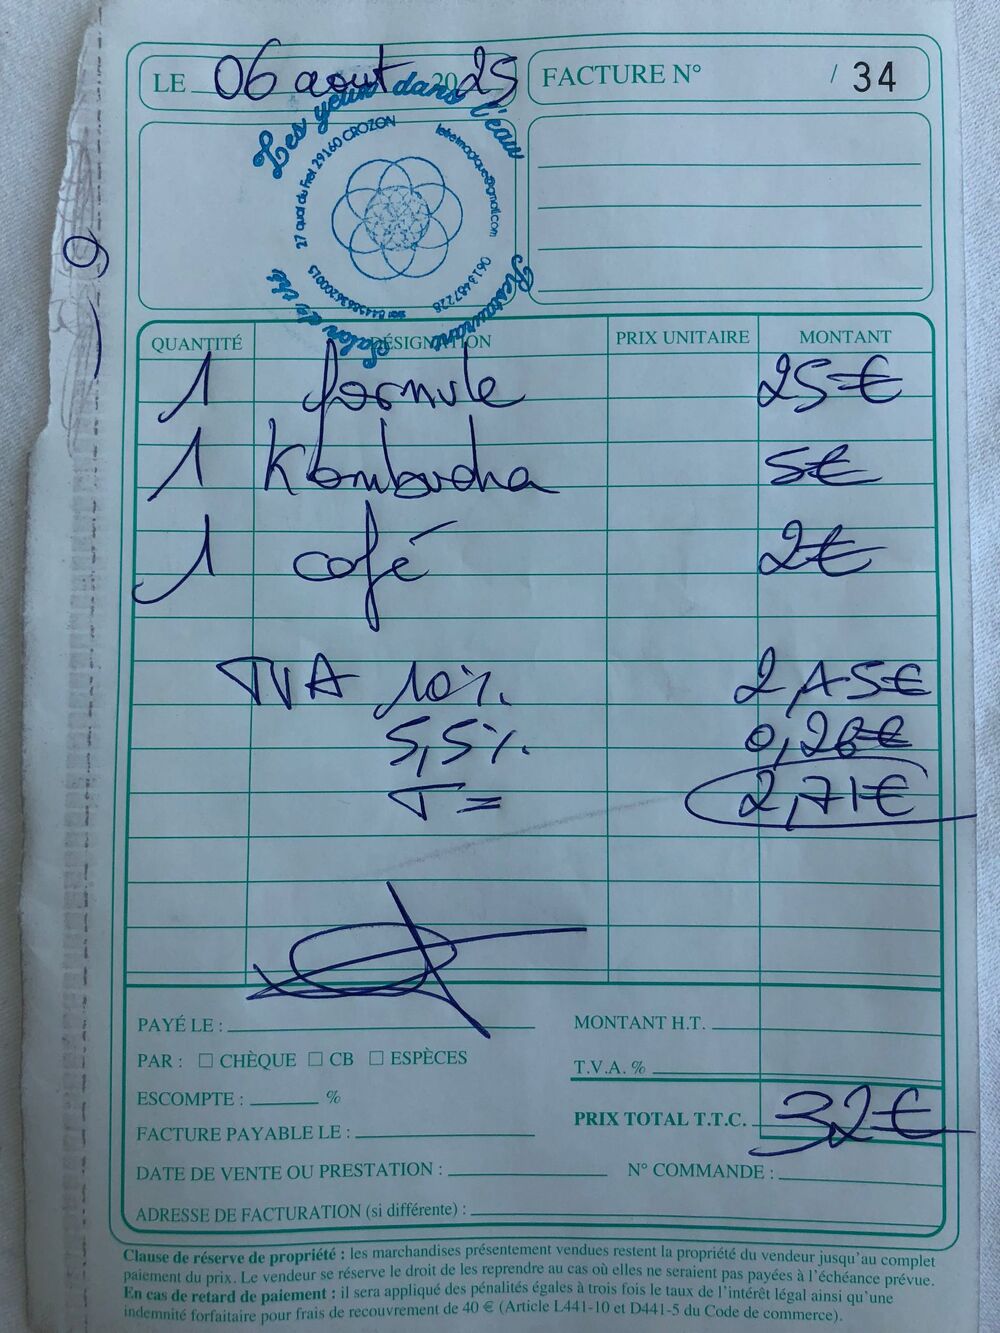 LE 06 aout 2025
FACTURE N° / 34
Les yeux dans l'eau
27 quai du Fret 29160 CROZON
letreetmagique@gmail.com
0613487228
Restaurant
Salon de thé
QUANTITÉ DÉSIGNATION PRIX UNITAIRE MONTANT
1 formule 25€
1 Kombucha 5€
1 café 2€
TVA 10% 2,45€
5,5% 0,26€
T = 2,71€
PAYÉ LE :
MONTANT H.T.
PAR : ☐ CHÈQUE ☐ CB ☐ ESPÈCES
T.V.A. %
ESCOMPTE : %
PRIX TOTAL T.T.C. 32€
FACTURE PAYABLE LE :
DATE DE VENTE OU PRESTATION : N° COMMANDE :
ADRESSE DE FACTURATION (si différente) :
Clause de réserve de propriété : les marchandises présentement vendues restent la propriété du vendeur jusqu'au complet
paiement du prix. Le vendeur se réserve le droit de les reprendre au cas où elles ne seraient pas payées à l'échéance prévue.
En cas de retard de paiement : il sera appliqué des pénalités égales à trois fois le taux de l'intérêt légal ainsi qu'une
indemnité forfaitaire pour frais de recouvrement de 40 € (Article L441-10 et D441-5 du Code de commerce).